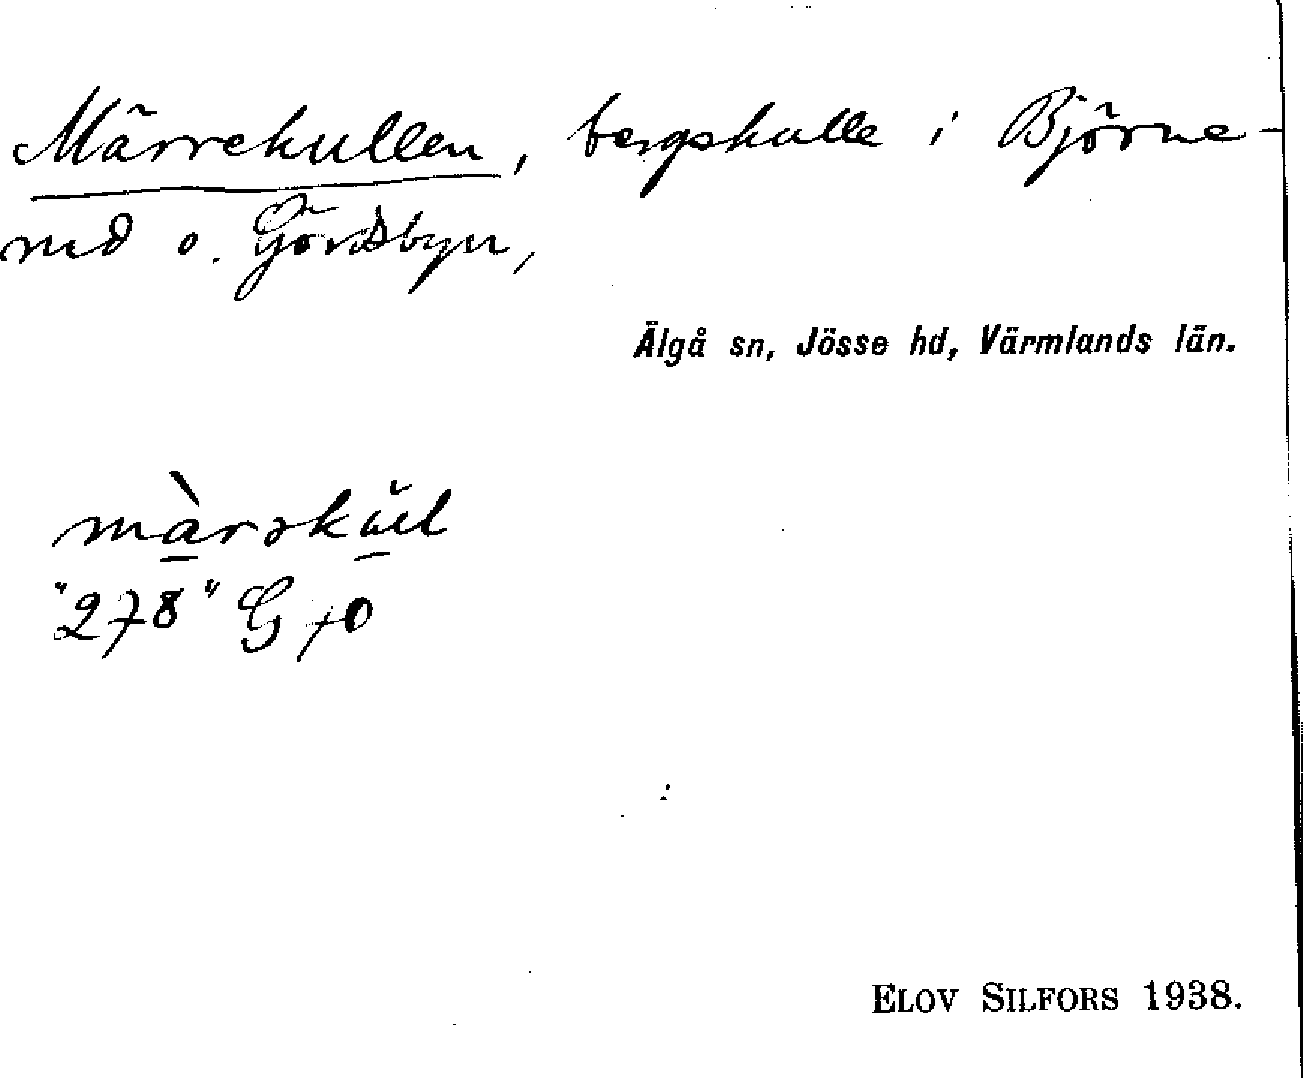 Märrekullen, bergskulle i Björne-
rud o. Gördsbyn,
Älgå sn, Jösse hd, Värmlands län.
màrəkŭl
"278" G 70
ELOV SILFORS 1938.